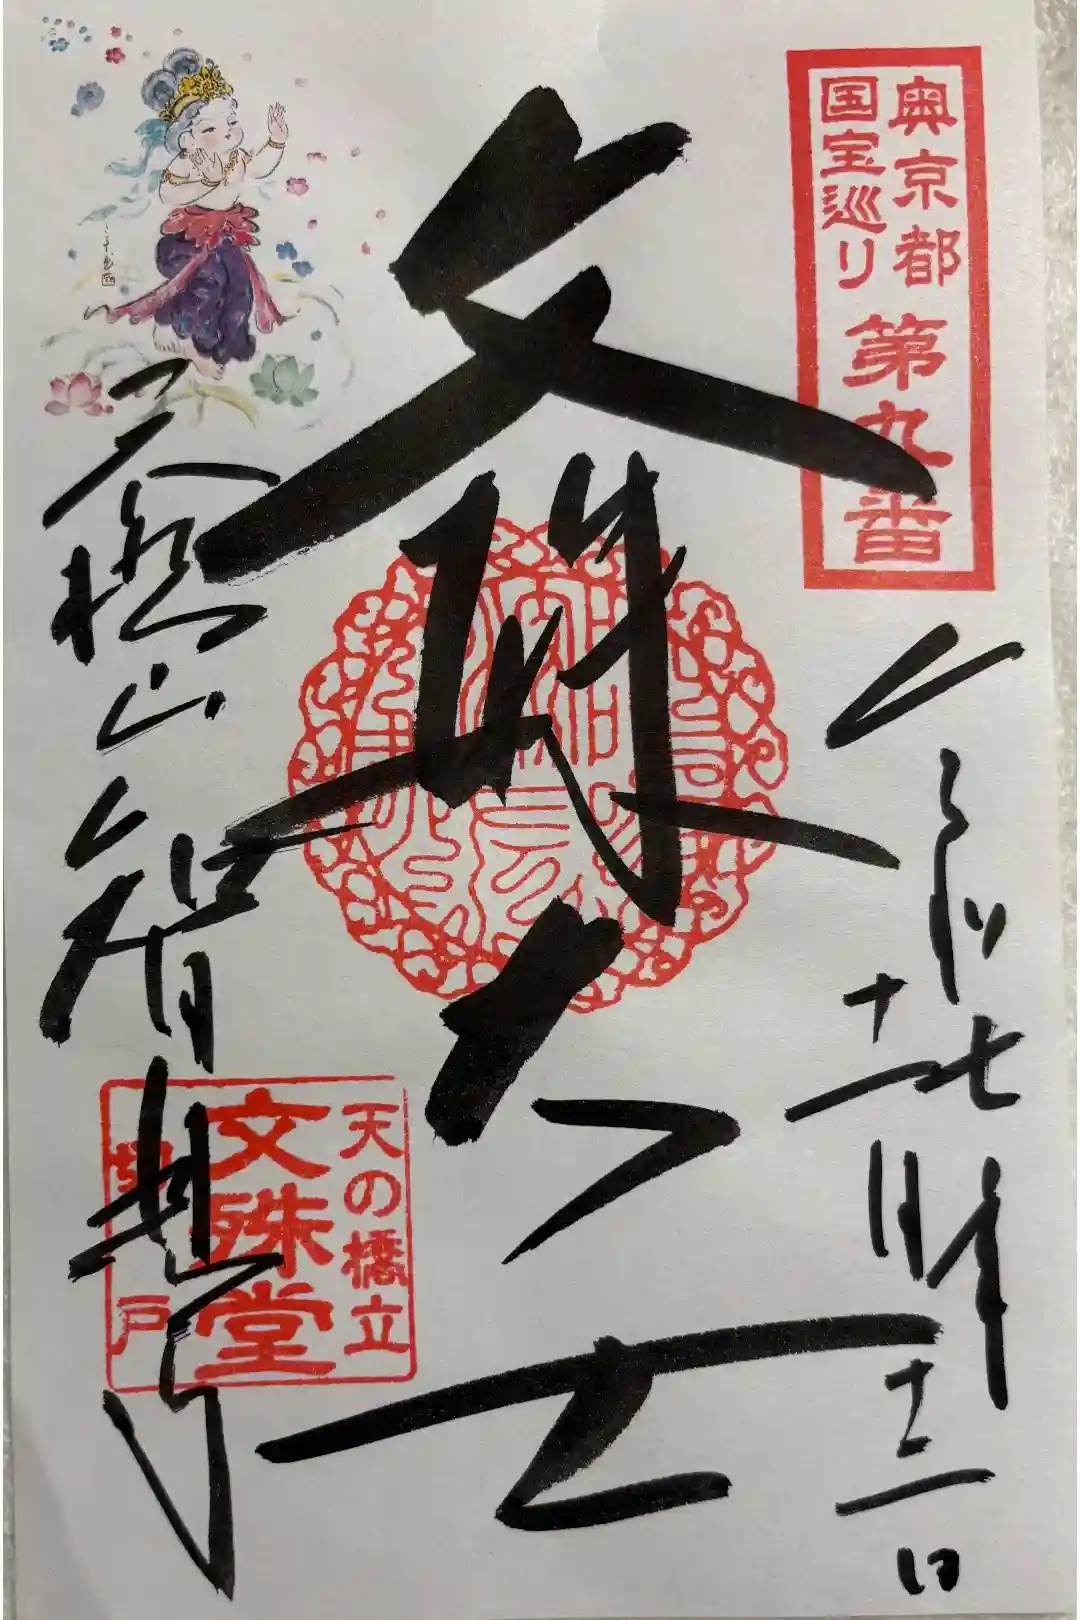 奥京都
国宝巡り
第九番
令和七年
十二月十二日
文殊大士
天橋山智恩寺
天の橋立
文殊堂
切戸